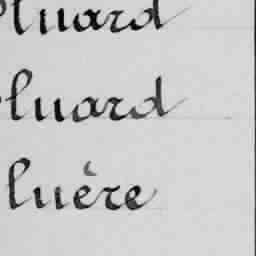 luard
luard
luère